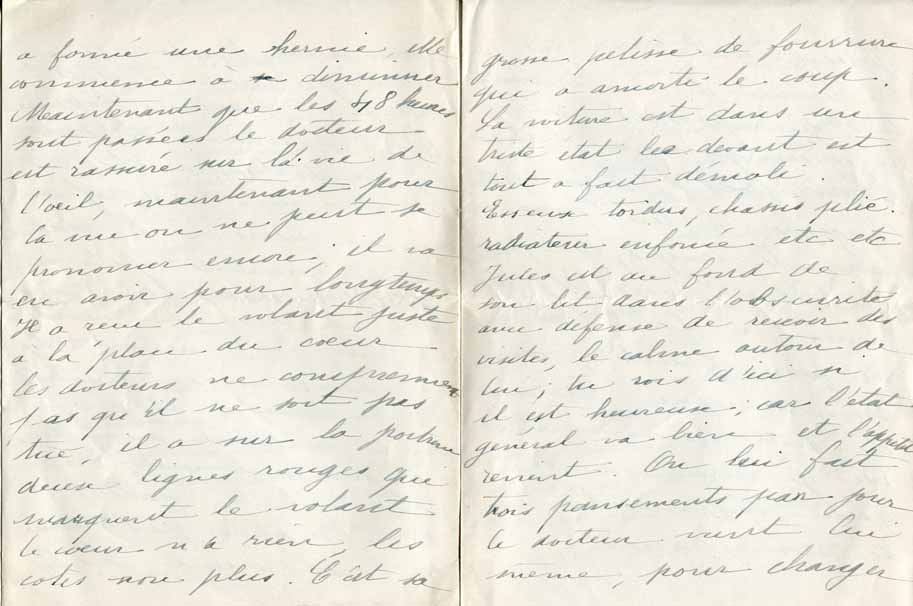 a formé une hernie, elle
commence à diminuer
Maintenant que les 48 heures
sont passées le docteur
est rassuré sur la vie de
l'œil, maintenant pour
la vue on ne peut se
prononcer encore, il va
en avoir pour longtemps
Il a recu le volant juste
à la place du cœur
les docteurs ne comprennent
pas qu'il ne soit pas
tué, il a sur la poitrine
deux lignes rouges qui
marquent le volant
le cœur n'a rien, les
cotes non plus. C'est sa
grosse pelisse de fourrure
qui a amorti le coup.
La voiture est dans un
triste etat le devant est
tout a fait démoli.
Essieux tordus, chassis plié.
radiateur enfoncé etc etc
Jules est au fond de
son lit dans l'obscurité
avec défense de recevoir des
visites, le calme autour de
lui; tu vois d'ici si
il est heureux; car l'état
général va bien et l'appétit
revient. On lui fait
trois pansements par jour
le docteur vient lui
meme, pour changer